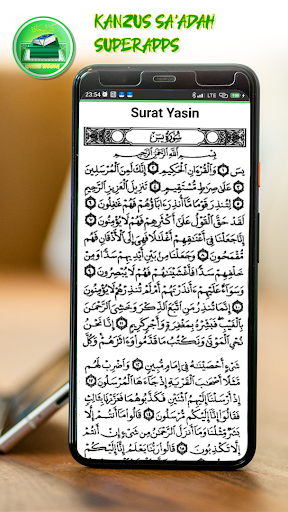 KANZUS SA'ADAH
SUPERAPPS
23:54
LTE
Surat Yasin
سُورَةُ يٰسٓ
بِسْمِ اللّٰهِ الرَّحْمٰنِ الرَّحِيْمِ
يٰسٓ ۝ وَالْقُرْاٰنِ الْحَكِيْمِ ۝ اِنَّكَ لَمِنَ الْمُرْسَلِيْنَ ۝
عَلٰى صِرَاطٍ مُّسْتَقِيْمٍ ۝ تَنْزِيْلَ الْعَزِيْزِ الرَّحِيْمِ ۝
لِتُنْذِرَ قَوْمًا مَّآ اُنْذِرَ اٰبَآؤُهُمْ فَهُمْ غٰفِلُوْنَ ۝
لَقَدْ حَقَّ الْقَوْلُ عَلٰٓى اَكْثَرِهِمْ فَهُمْ لَا يُؤْمِنُوْنَ ۝
اِنَّا جَعَلْنَا فِيْٓ اَعْنَاقِهِمْ اَغْلٰلًا فَهِيَ اِلَى الْاَذْقَانِ فَهُمْ
مُّقْمَحُوْنَ ۝ وَجَعَلْنَا مِنْۢ بَيْنِ اَيْدِيْهِمْ سَدًّا وَّمِنْ
خَلْفِهِمْ سَدًّا فَاَغْشَيْنٰهُمْ فَهُمْ لَا يُبْصِرُوْنَ ۝
وَسَوَآءٌ عَلَيْهِمْ ءَاَنْذَرْتَهُمْ اَمْ لَمْ تُنْذِرْهُمْ لَا يُؤْمِنُوْنَ ۝
اِنَّمَا تُنْذِرُ مَنِ اتَّبَعَ الذِّكْرَ وَخَشِيَ الرَّحْمٰنَ
بِالْغَيْبِ فَبَشِّرْهُ بِمَغْفِرَةٍ وَّاَجْرٍ كَرِيْمٍ ۝ اِنَّا نَحْنُ
نُحْيِ الْمَوْتٰى وَنَكْتُبُ مَا قَدَّمُوْا وَاٰثَارَهُمْ وَكُلَّ
شَيْءٍ اَحْصَيْنٰهُ فِيْٓ اِمَامٍ مُّبِيْنٍ ۝ وَاضْرِبْ لَهُمْ
مَّثَلًا اَصْحٰبَ الْقَرْيَةِ اِذْ جَآءَهَا الْمُرْسَلُوْنَ ۝
اِذْ اَرْسَلْنَآ اِلَيْهِمُ اثْنَيْنِ فَكَذَّبُوْهُمَا فَعَزَّزْنَا بِثَالِثٍ
فَقَالُوْٓا اِنَّآ اِلَيْكُمْ مُّرْسَلُوْنَ ۝ قَالُوْا مَآ اَنْتُمْ اِلَّا
بَشَرٌ مِّثْلُنَا وَمَآ اَنْزَلَ الرَّحْمٰنُ مِنْ شَيْءٍ اِنْ اَنْتُمْ
اِلَّا تَكْذِبُوْنَ ۝ قَالُوْا رَبُّنَا يَعْلَمُ اِنَّآ اِلَيْكُمْ